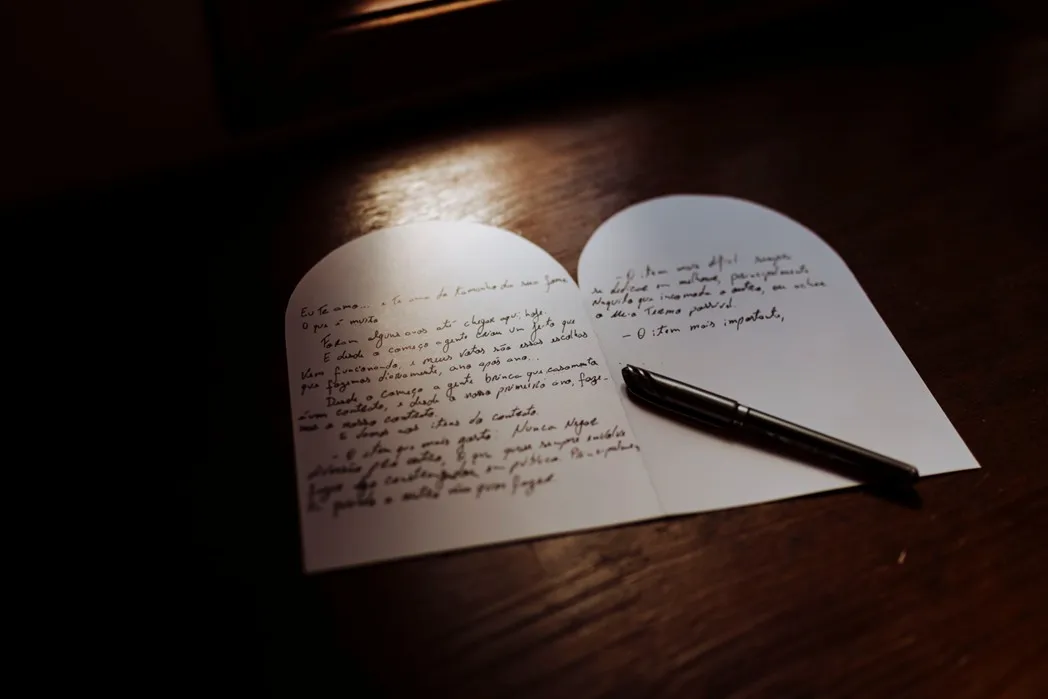 Eu Te amo... e Te amo do tamanho da sua fome
O que é muito.
Foram alguns anos até chegar aqui, hoje.
E desde o começo a gente criou um jeito que
vem funcionando, e meus votos são essas escolhas
que fazemos diariamente, ano após ano...
Desde o começo a gente brinca que casamento
é um contrato, e desde o nosso primeiro ano, faze-
mos o nosso contrato.
E temos nos itens do contrato.
- O item que mais gosto: Nunca Negue
diversão pro outro. O que quase sempre envolve
em público. Principalmente
quando o outro não quer fazer.
- O item mais difícil sempre
se dedicar em melhorar, principalmente
Naquilo que incomoda o outro, ou achar
o meio Termo possível.
- O item mais importante,